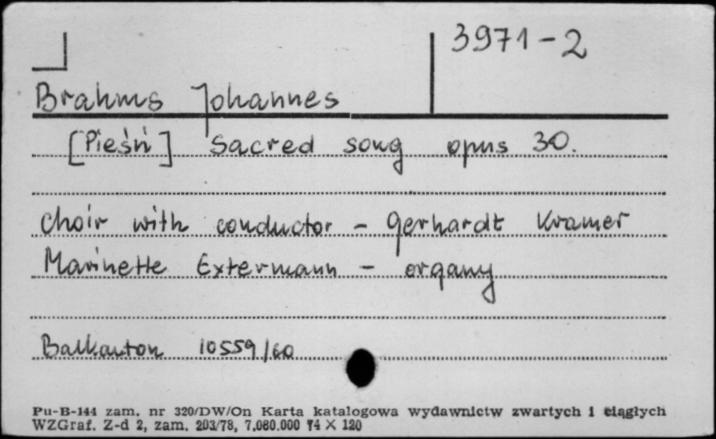 3971-2
Brahms Johannes
[Pieśń] Sacred song opus 30.
Choir with conductor - Gerhardt Kramer
Marinette Extermann - organy
Balkanton 10559/60
Pu-B-144 zam. nr 320/DW/On Karta katalogowa wydawnictw zwartych i ciągłych
WZGraf. Z-d 2, zam. 203/78, 7.080.000 74 X 120